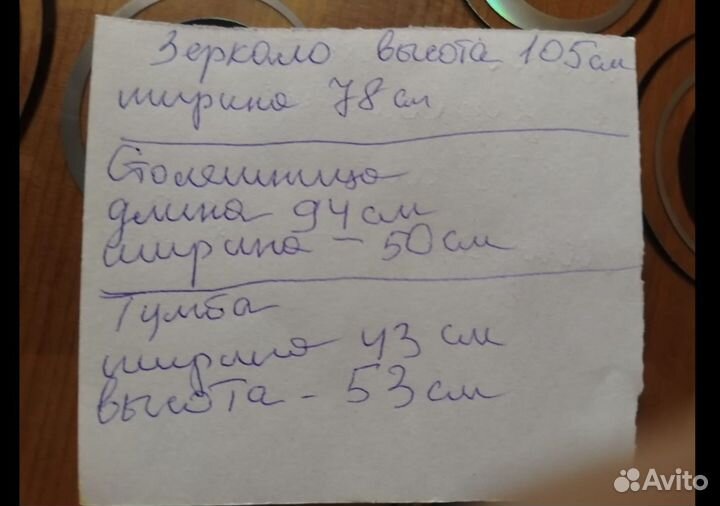 Зеркало высота 105см
ширина 78см
Столешница
длина 94см
ширина - 50см
Тумба
ширина 43 см
высота - 53см
Avito